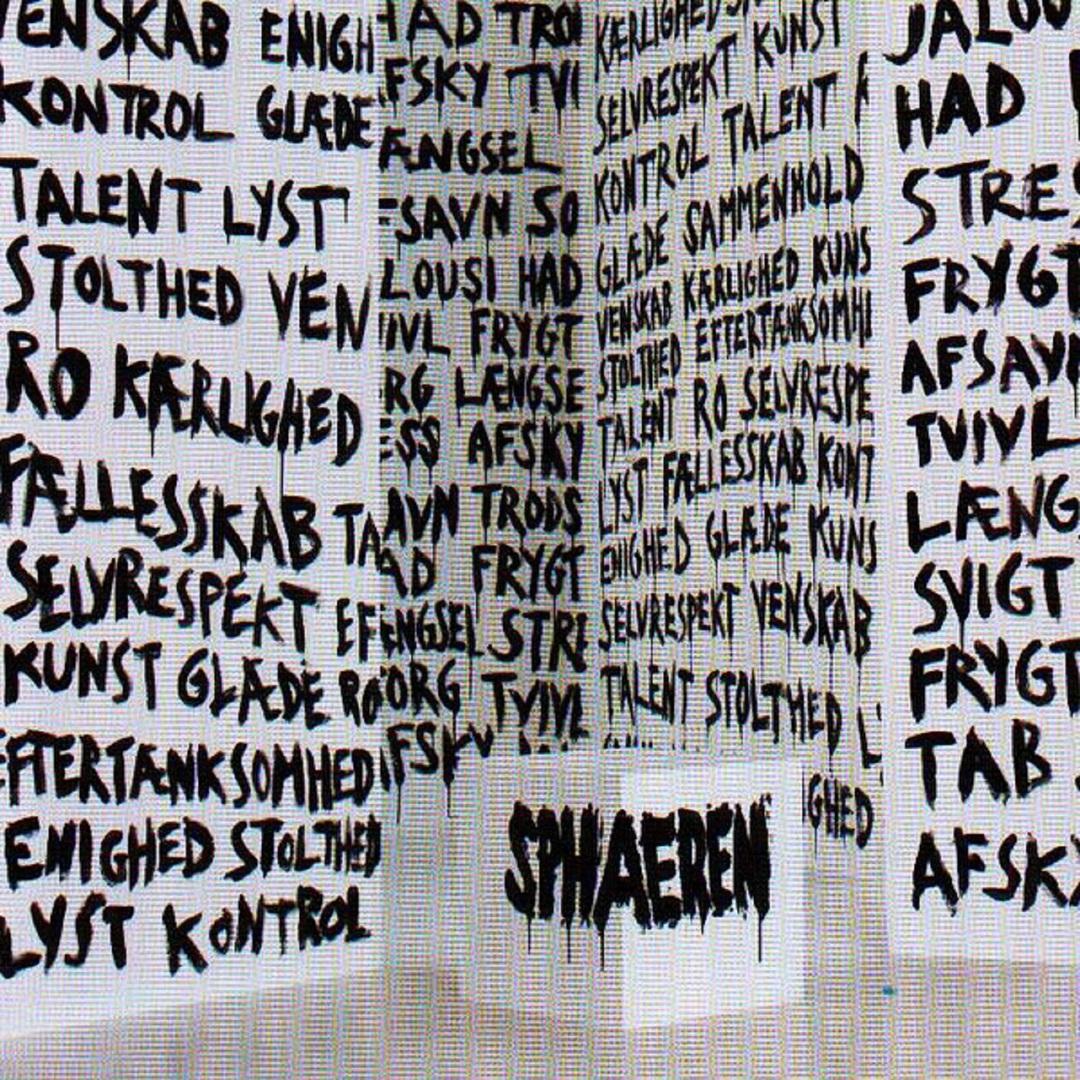 VENSKAB ENIGH
KONTROL GLÆDE
TALENT LYST
STOLTHED VEN
RO KÆRLIGHED
FÆLLESSKAB TA
SELVRESPEKT EF
KUNST GLÆDE RO
EFTERTÆNKSOMHED
ENIGHED STOLTHED
LYST KONTROL
HAD TRO
FSKY TVI
ÆNGSEL
SAVN SO
LOUSI HAD
IVL FRYGT
RG LÆNGSE
ESS AFSKY
AVN TRODS
AD FRYGT
ENGSEL STRE
ORG TVIVL
FSKY
KÆRLIGHED
SELVRESPEKT KUNST
KONTROL TALENT
GLÆDE SAMMENHOLD
VENSKAB KÆRLIGHED KUNS
STOLTHED EFTERTÆNKSOMH
TALENT RO SELVRESPE
LYST FÆLLESSKAB KONT
ENIGHED GLÆDE KUNS
SELVRESPEKT VENSKAB
TALENT STOLTHED L
GHED
SPHAEREN
JALOU
HAD
STRES
FRYGT
AFSAVN
TVIVL
LÆNG
SVIGT
FRYGT
TAB
AFSK